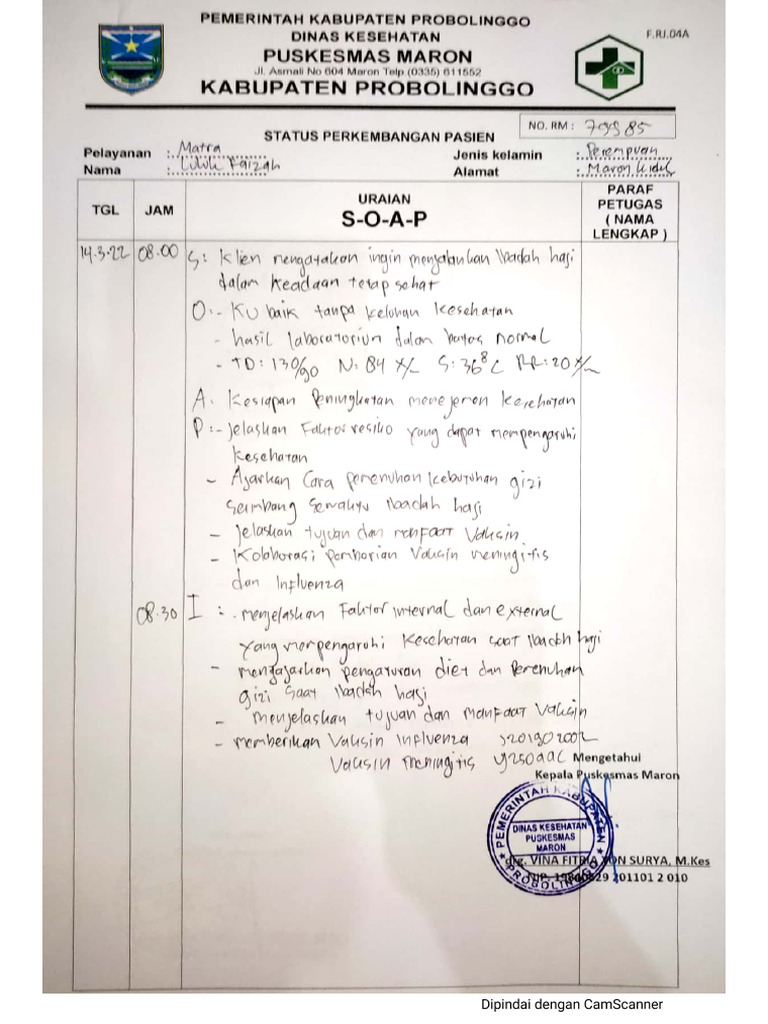 PEMERINTAH KABUPATEN PROBOLINGGO
DINAS KESEHATAN
F.RJ.04A
PUSKESMAS MARON
Jl. Asmali No 604 Maron Telp.(0335) 611552
KABUPATEN PROBOLINGGO
NO. RM : 79985
STATUS PERKEMBANGAN PASIEN
Pelayanan : Matra Jenis kelamin : Perempuan
Nama : Luluk Faizah Alamat : Maron Kidul
TGL JAM URAIAN S-O-A-P PARAF PETUGAS ( NAMA LENGKAP )
14.3.22 08.00 S: Klien mengatakan ingin menjalankan Ibadah haji
dalam keadaan tetap sehat
O:- KU baik tanpa keluhan kesehatan
- hasil laboratorium dalam batas normal
- TD: 130/90 N: 84 x/m S: 36⁸ C RR: 20 x/m
A. Kesiapan Peningkatan menejemen kesehatan
P:- Jelaskan Faktor resiko yang dapat mempengaruhi
kesehatan
- Ajarkan Cara pemenuhan kebutuhan gizi
Seimbang Sewaktu Ibadah haji
- Jelaskan tujuan dan manfaat Vaksin
- Kolaborasi pemberian Vaksin meningitis
dan Influenza
08.30 I : - menjelaskan Faktor internal dan external
yang mempengaruhi Kesehatan saat Ibadah haji
- mengajarkan pengaturan diet dan Pemenuhan
gizi saat Ibadah haji
- menjelaskan tujuan dan manfaat Vaksin
- memberikan Vaksin Influenza
Vaksin meningitis
Mengetahui
Kepala Puskesmas Maron
PEMERINTAH KABUPATEN
DINAS KESEHATAN
PUSKESMAS
MARON
PROBOLINGGO
drg. VINA FITRIA YON SURYA, M.Kes
201101 2 010
Dipindai dengan CamScanner